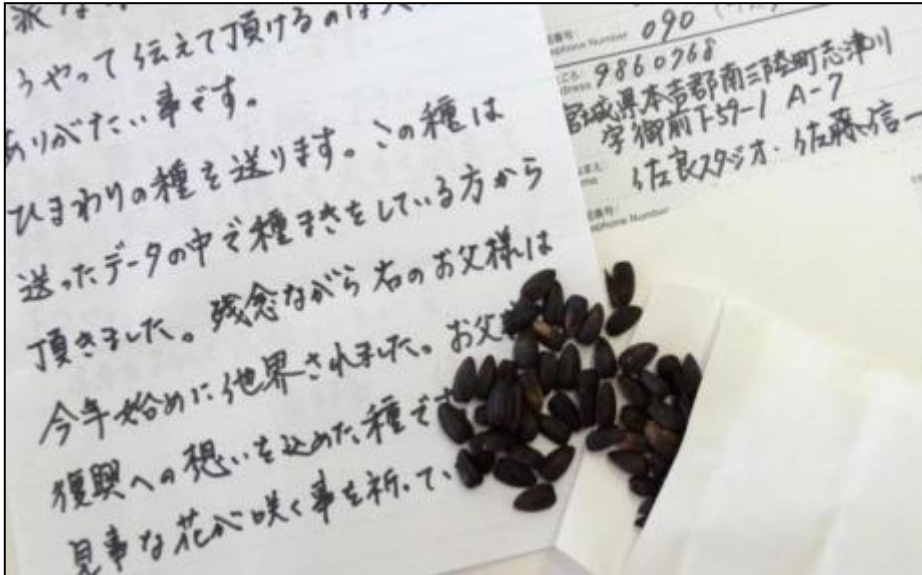 うやって伝えて頂けるのは
ありがたい事です。
ひまわりの種を送ります。この種は
送ったデータの中で種まきをしている方から
頂きました。残念ながら右のお父様は
今年始めに他界されました。お父
復興への想いを込めた種で
見事な花が咲く事を祈って、
phone Number 090
dress 9860768
宮城県本吉郡南三陸町志津川
字御前下59-1 A-7
佐良スタジオ・佐藤信一
phone Number